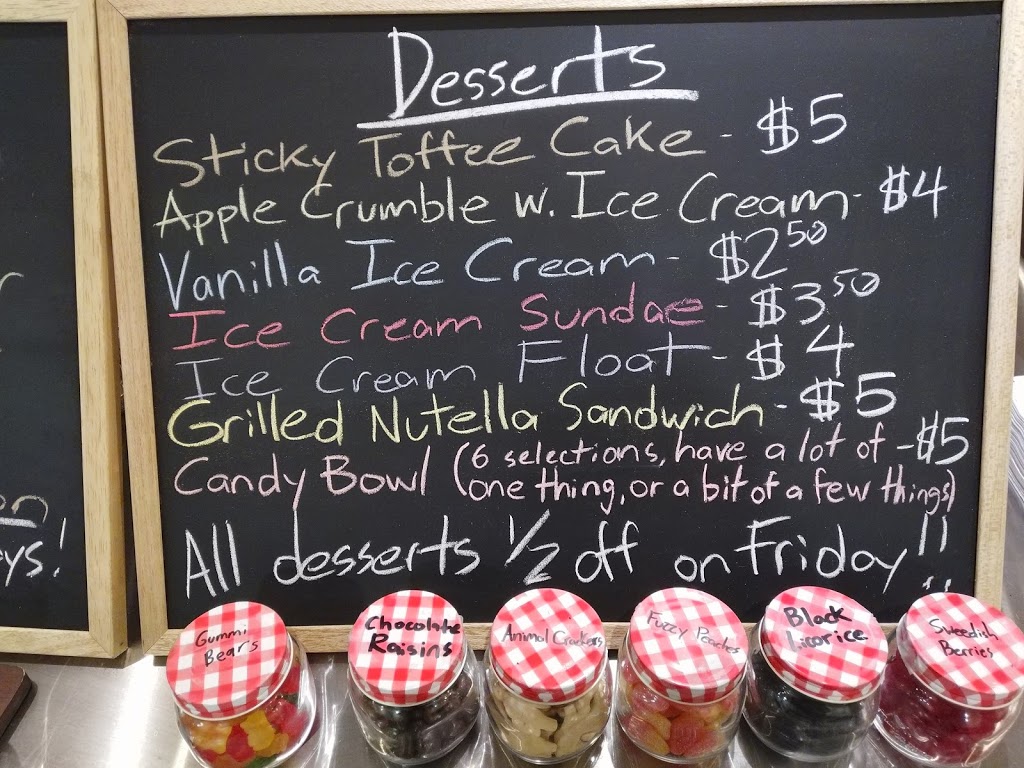 Desserts
Sticky Toffee Cake - $5
Apple Crumble w. Ice Cream - $4
Vanilla Ice Cream - $2.50
Ice Cream Sundae - $3.50
Ice Cream Float - $4
Grilled Nutella Sandwich - $5
Candy Bowl (6 selections, have a lot of - $5
one thing, or a bit of a few things)
All desserts 1/2 off on Friday!!
Gummi
Bears
Chocolate
Raisins
Animal Crackers
Fuzzy Peaches
Black
licorice
Sweedish
Berries